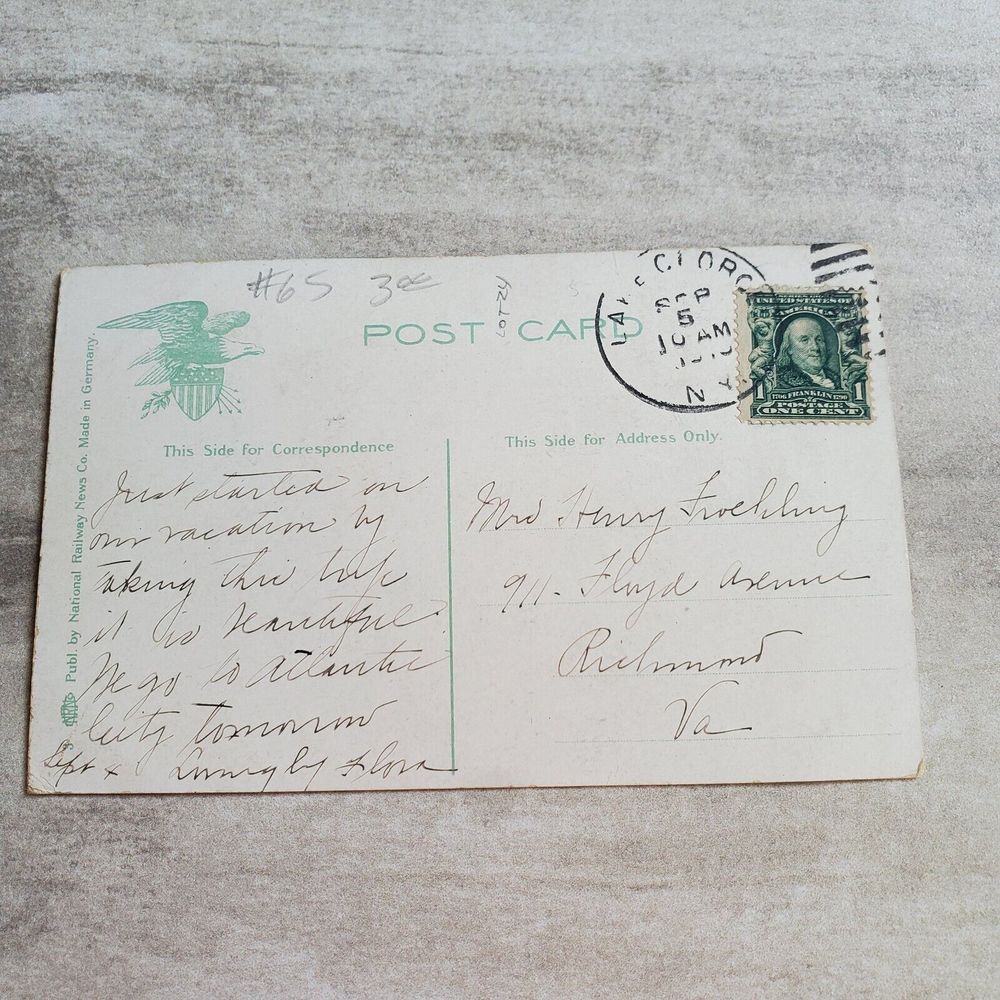 #65 3.00 LOT24
POST CARD
LAKE GEORGE
SEP
5
10 AM
N Y
SERIES 1902
UNITED STATES OF
AMERICA
1 1
1706 FRANKLIN 1790
POSTAGE
ONE CENT
Publ. by National Railway News Co. Made in Germany
This Side for Correspondence
Just started on
our vacation by
taking this trip
it is beautiful.
We go to Atlantic
City tomorrow
Sept 4 Lovingly Flora
This Side for Address Only.
Mrs Henry Froehling
911 - Floyd Avenue
Richmond
Va